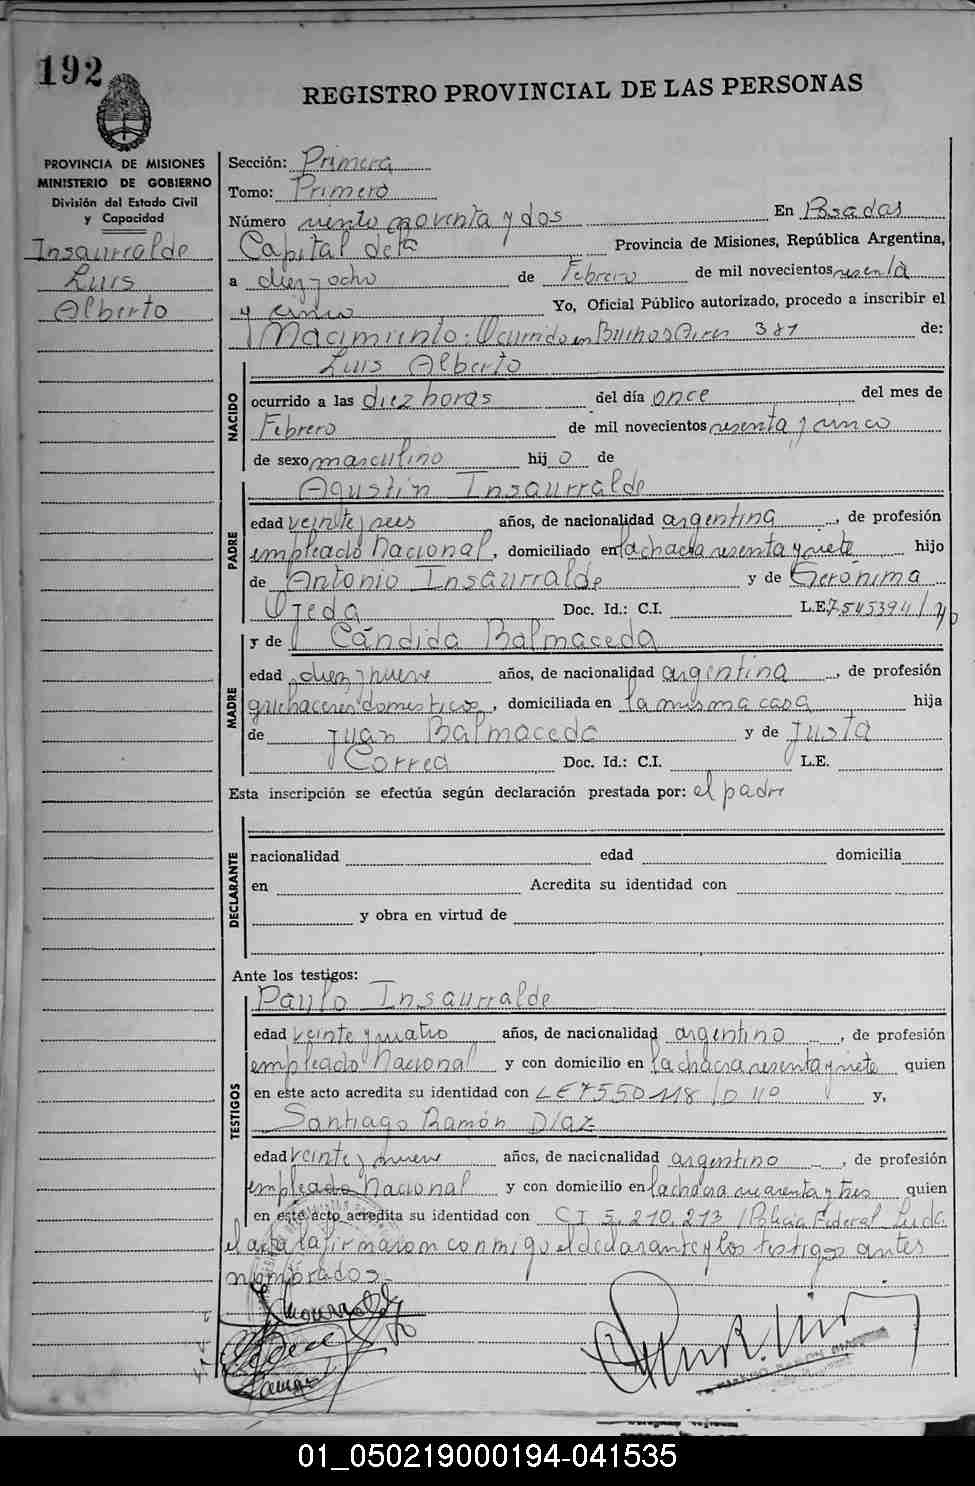 192
REGISTRO PROVINCIAL DE LAS PERSONAS
PROVINCIA DE MISIONES
MINISTERIO DE GOBIERNO
División del Estado Civil
y Capacidad
Insaurralde
Luis
Alberto
Sección: Primera
Tomo: Primero
Número ciento noventa y dos En Posadas
Capital de la Provincia de Misiones, República Argentina,
a diez y ocho de Febrero de mil novecientos sesenta
y cinco Yo, Oficial Público autorizado, procedo a inscribir el
Nacimiento: Ocurrido en Buenos Aires 381 de:
Luis Alberto
NACIDO
ocurrido a las diez horas del día once del mes de
Febrero de mil novecientos sesenta y cinco
de sexo masculino hij o de
Agustín Insaurralde
PADRE
edad veinte y seis años, de nacionalidad argentina, de profesión
empleado Nacional, domiciliado en la chacra sesenta y siete hijo
de Antonio Insaurralde y de Gerónima
Ojeda Doc. Id.: C.I. L.E. 7.545394/
y de Cándida Balmaceda
MADRE
edad diez y nueve años, de nacionalidad argentina, de profesión
quehaceres domésticos, domiciliada en la misma casa hija
de Juan Balmaceda y de Justa
Correa Doc. Id.: C.I. L.E.
Esta inscripción se efectúa según declaración prestada por: el padre
DECLARANTE
nacionalidad edad domicilia
en Acredita su identidad con
y obra en virtud de
Ante los testigos:
Paulo Insaurralde
TESTIGOS
edad veinte y cuatro años, de nacionalidad argentino, de profesión
empleado Nacional y con domicilio en la chacra sesenta y siete quien
en este acto acredita su identidad con LE 7550118/D 110 y,
Santiago Ramón Díaz
edad veinte y nueve años, de nacionalidad argentino, de profesión
empleado Nacional y con domicilio en la chacra cuarenta y tres quien
en este acto acredita su identidad con C I 5.210.213/Policia Federal
el acta la firmaron conmigo el declarante y los testigos antes
nombrados
01_050219000194-041535